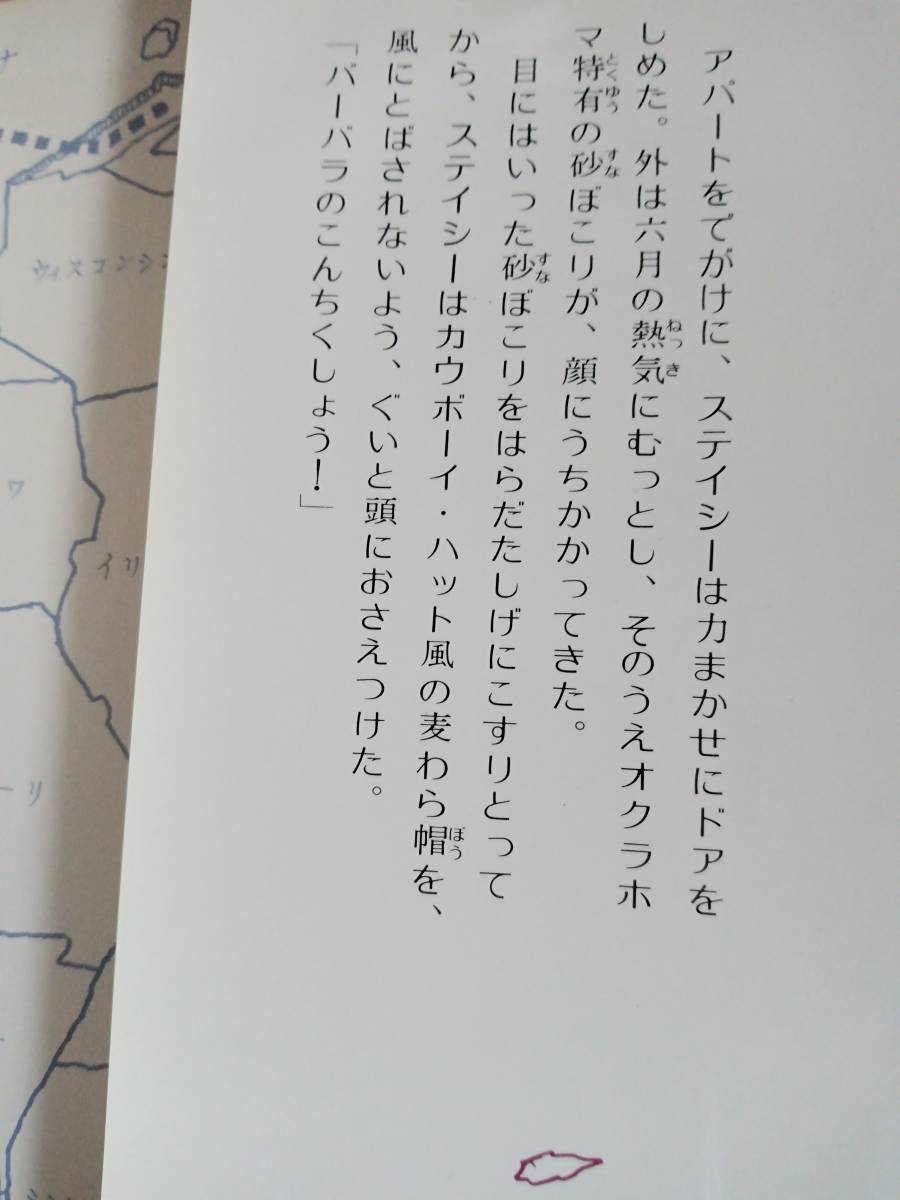 アパートをでがけに、ステイシーは力まかせにドアを
しめた。外は六月の熱気にむっとし、そのうえオクラホ
マ特有の砂ぼこりが、顔にうちかかってきた。
目にはいった砂ぼこりをはらだたしげにこすりとって
から、ステイシーはカウボーイ・ハット風の麦わら帽を、
風にとばされないよう、ぐいと頭におさえつけた。
「バーバラのこんちくしょう！」
ウィスコンシン
イリ